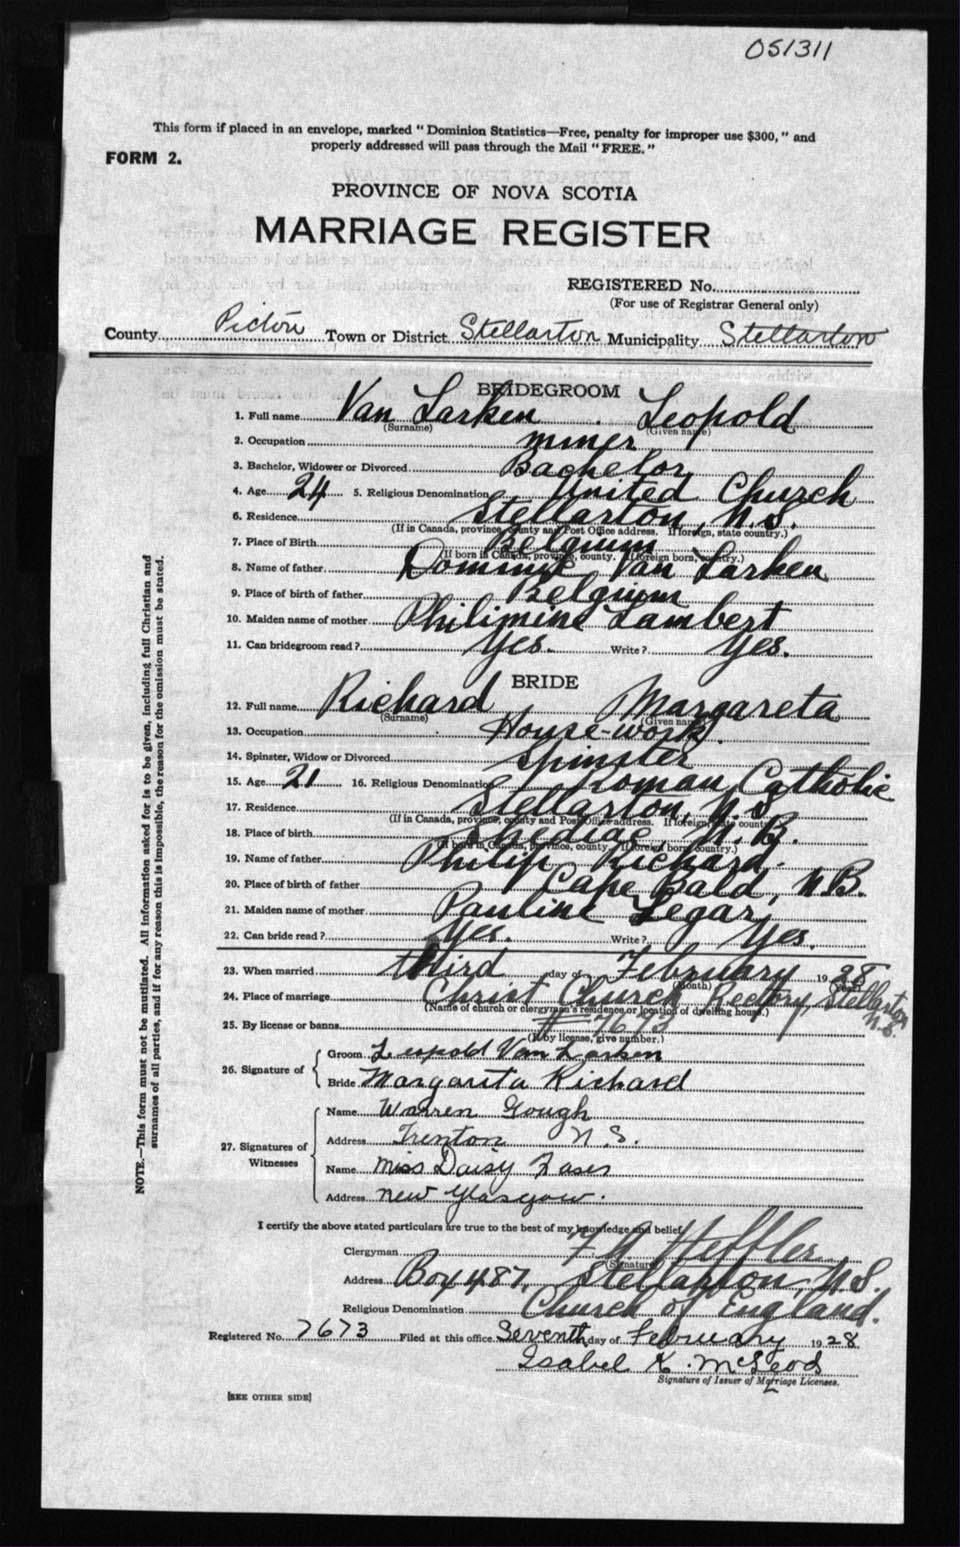 051311
This form if placed in an envelope, marked "Dominion Statistics—Free, penalty for improper use $300," and
properly addressed will pass through the Mail "FREE."
FORM 2.
PROVINCE OF NOVA SCOTIA
MARRIAGE REGISTER
REGISTERED No.
(For use of Registrar General only)
County Pictou Town or District Stellarton Municipality Stellarton
BRIDEGROOM
1. Full name Van Larken Leopold
(Surname) (Given name)
2. Occupation miner
3. Bachelor, Widower or Divorced Bachelor
4. Age 24 5. Religious Denomination United Church
6. Residence Stellarton, N.S.
(If in Canada, province, county and Post Office address. If foreign, state country.)
7. Place of Birth Belgium
(If born in Canada, province, county. If foreign born, country.)
8. Name of father Van Larken
9. Place of birth of father Belgium
10. Maiden name of mother Philimine Lambert
11. Can bridegroom read? Yes. Write? Yes.
BRIDE
12. Full name Richard Margareta
(Surname) (Given name)
13. Occupation House-work
14. Spinster, Widow or Divorced Spinster
15. Age 21 16. Religious Denomination Roman Catholic
17. Residence Stellarton, N.S.
(If in Canada, province, county and Post Office address. If foreign, state country.)
18. Place of birth Shediac N.B.
(If born in Canada, province, county. If foreign born, country.)
19. Name of father Philip Richard.
20. Place of birth of father Cape Bald, N.B.
21. Maiden name of mother Pauline Legar
22. Can bride read? Yes. Write? Yes.
23. When married third day of February 1928
(Month) (Year)
24. Place of marriage Christ Church Rectory, Stellarton N.S.
(Name of church or clergyman's residence or location of dwelling house.)
25. By license or banns # 7673
(If by license, give number.)
26. Signature of Groom Leopold Van Larken
Bride Margarita Richard
27. Signatures of Witnesses Name Warren Gough
Address Trenton N.S.
Name Miss Daisy
Address New Glasgow.
I certify the above stated particulars are true to the best of my knowledge and belief
Clergyman Heffler
(Signature)
Address Box 487, Stellarton, N.S.
Religious Denomination Church of England.
Registered No. 7673 Filed at this office Seventh day of February 1928
Isabel K. McLeod
Signature of Issuer of Marriage Licenses.
[SEE OTHER SIDE]
NOTE.—This form must not be mutilated. All information asked for is to be given, including full Christian and
surnames of all parties, and if for any reason this is impossible, the reason for the omission must be stated.